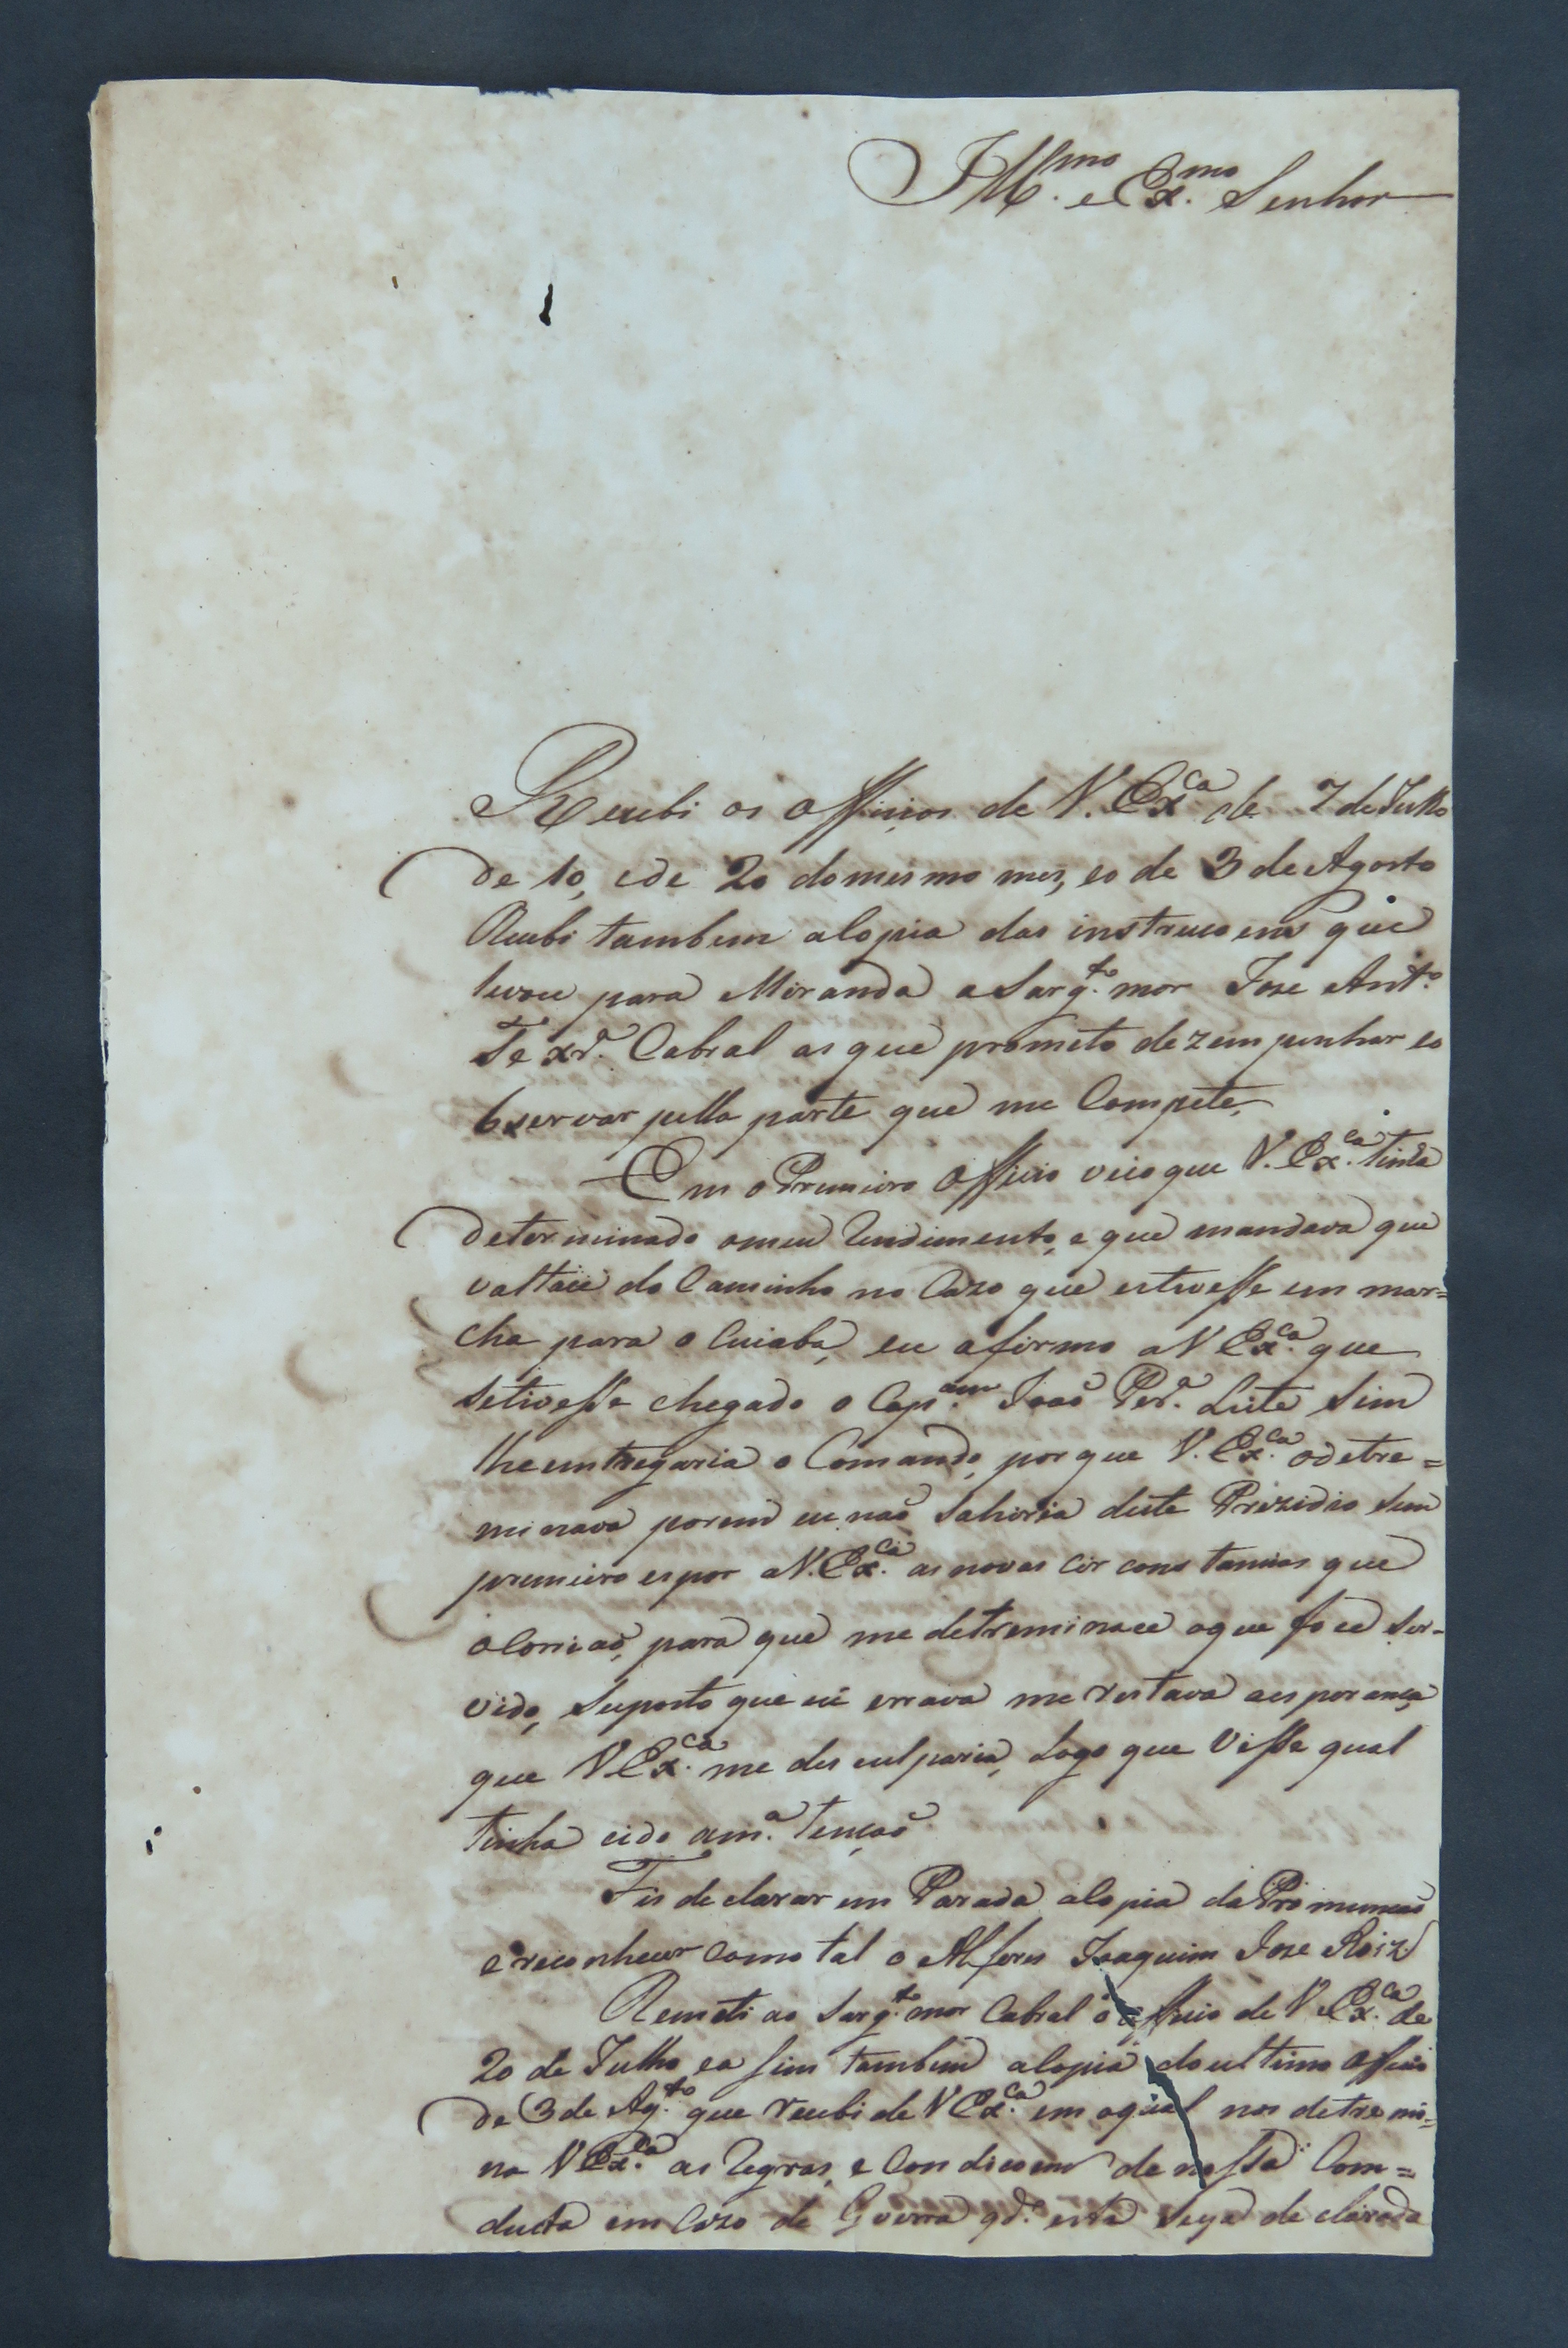 Ill.mo e Ex.mo Senhor
Recebi os officios de V. Ex.ca de 7 de Julho
de 10, e de 20 do mesmo mes, e o de 3 de Agosto
Recebi tambem a Copia das instrucoens que
levou para Miranda o Sarg.to mor Joze Ant.o
Texr.a Cabral as que prometo dezempenhar e o
bservar pella parte que me Compete,
Em o Premeiro Officio vejo que V. Ex.ca tinha
determinado o meu Rendimento, e que mandava que
voltace do Caminho no Cazo que estivesse em mar=
cha para o Cuiaba, eu afirmo a V Ex.ca que
setivesse chegado o Cap.am Joaõ Per.a Leite Sim
lhe emtregaria o Comando, porque V. Ex.ca o detre=
minava porem eu naõ Sahiria deste Prezidio Sem
premeiro espor a V. Ex.ca as novas circonstancias que
ocorriaõ, para que me detreminace o que foce Ser-
vido, Suposto que eu errava me restava a esperança
que V. Ex.ca me desculparia, Logo que Visse qual
tinha cido a m.a tençaõ
Fis declarar em Parada a Copia da Promumcaõ
e reconhecer como tal o Alferes Joaquim Joze Roiz
Remeti ao Sarg.to mor Cabral o officio de V. Ex.ca de
20 de Julho, e a Sim tambem a Copia do ultimo Officio
de 3 de Ag.to que recebi de V Ex.ca em o qual nos detremi=
na V Ex.ca as Regras, e Condicoens de nossa Com=
ducta em Cazo de Guerra qd.o esta Seja declarada